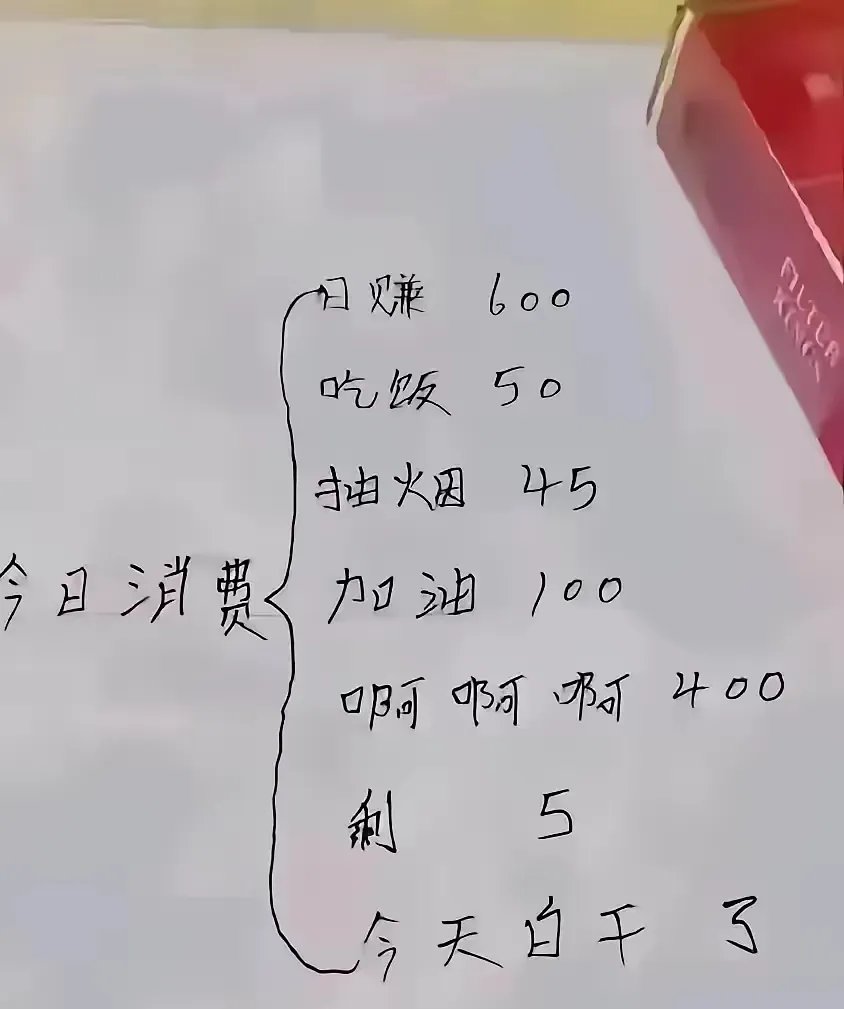 日赚 600
吃饭 50
抽烟 45
今日消费
加油 100
啊啊啊 400
剩 5
今天白干了